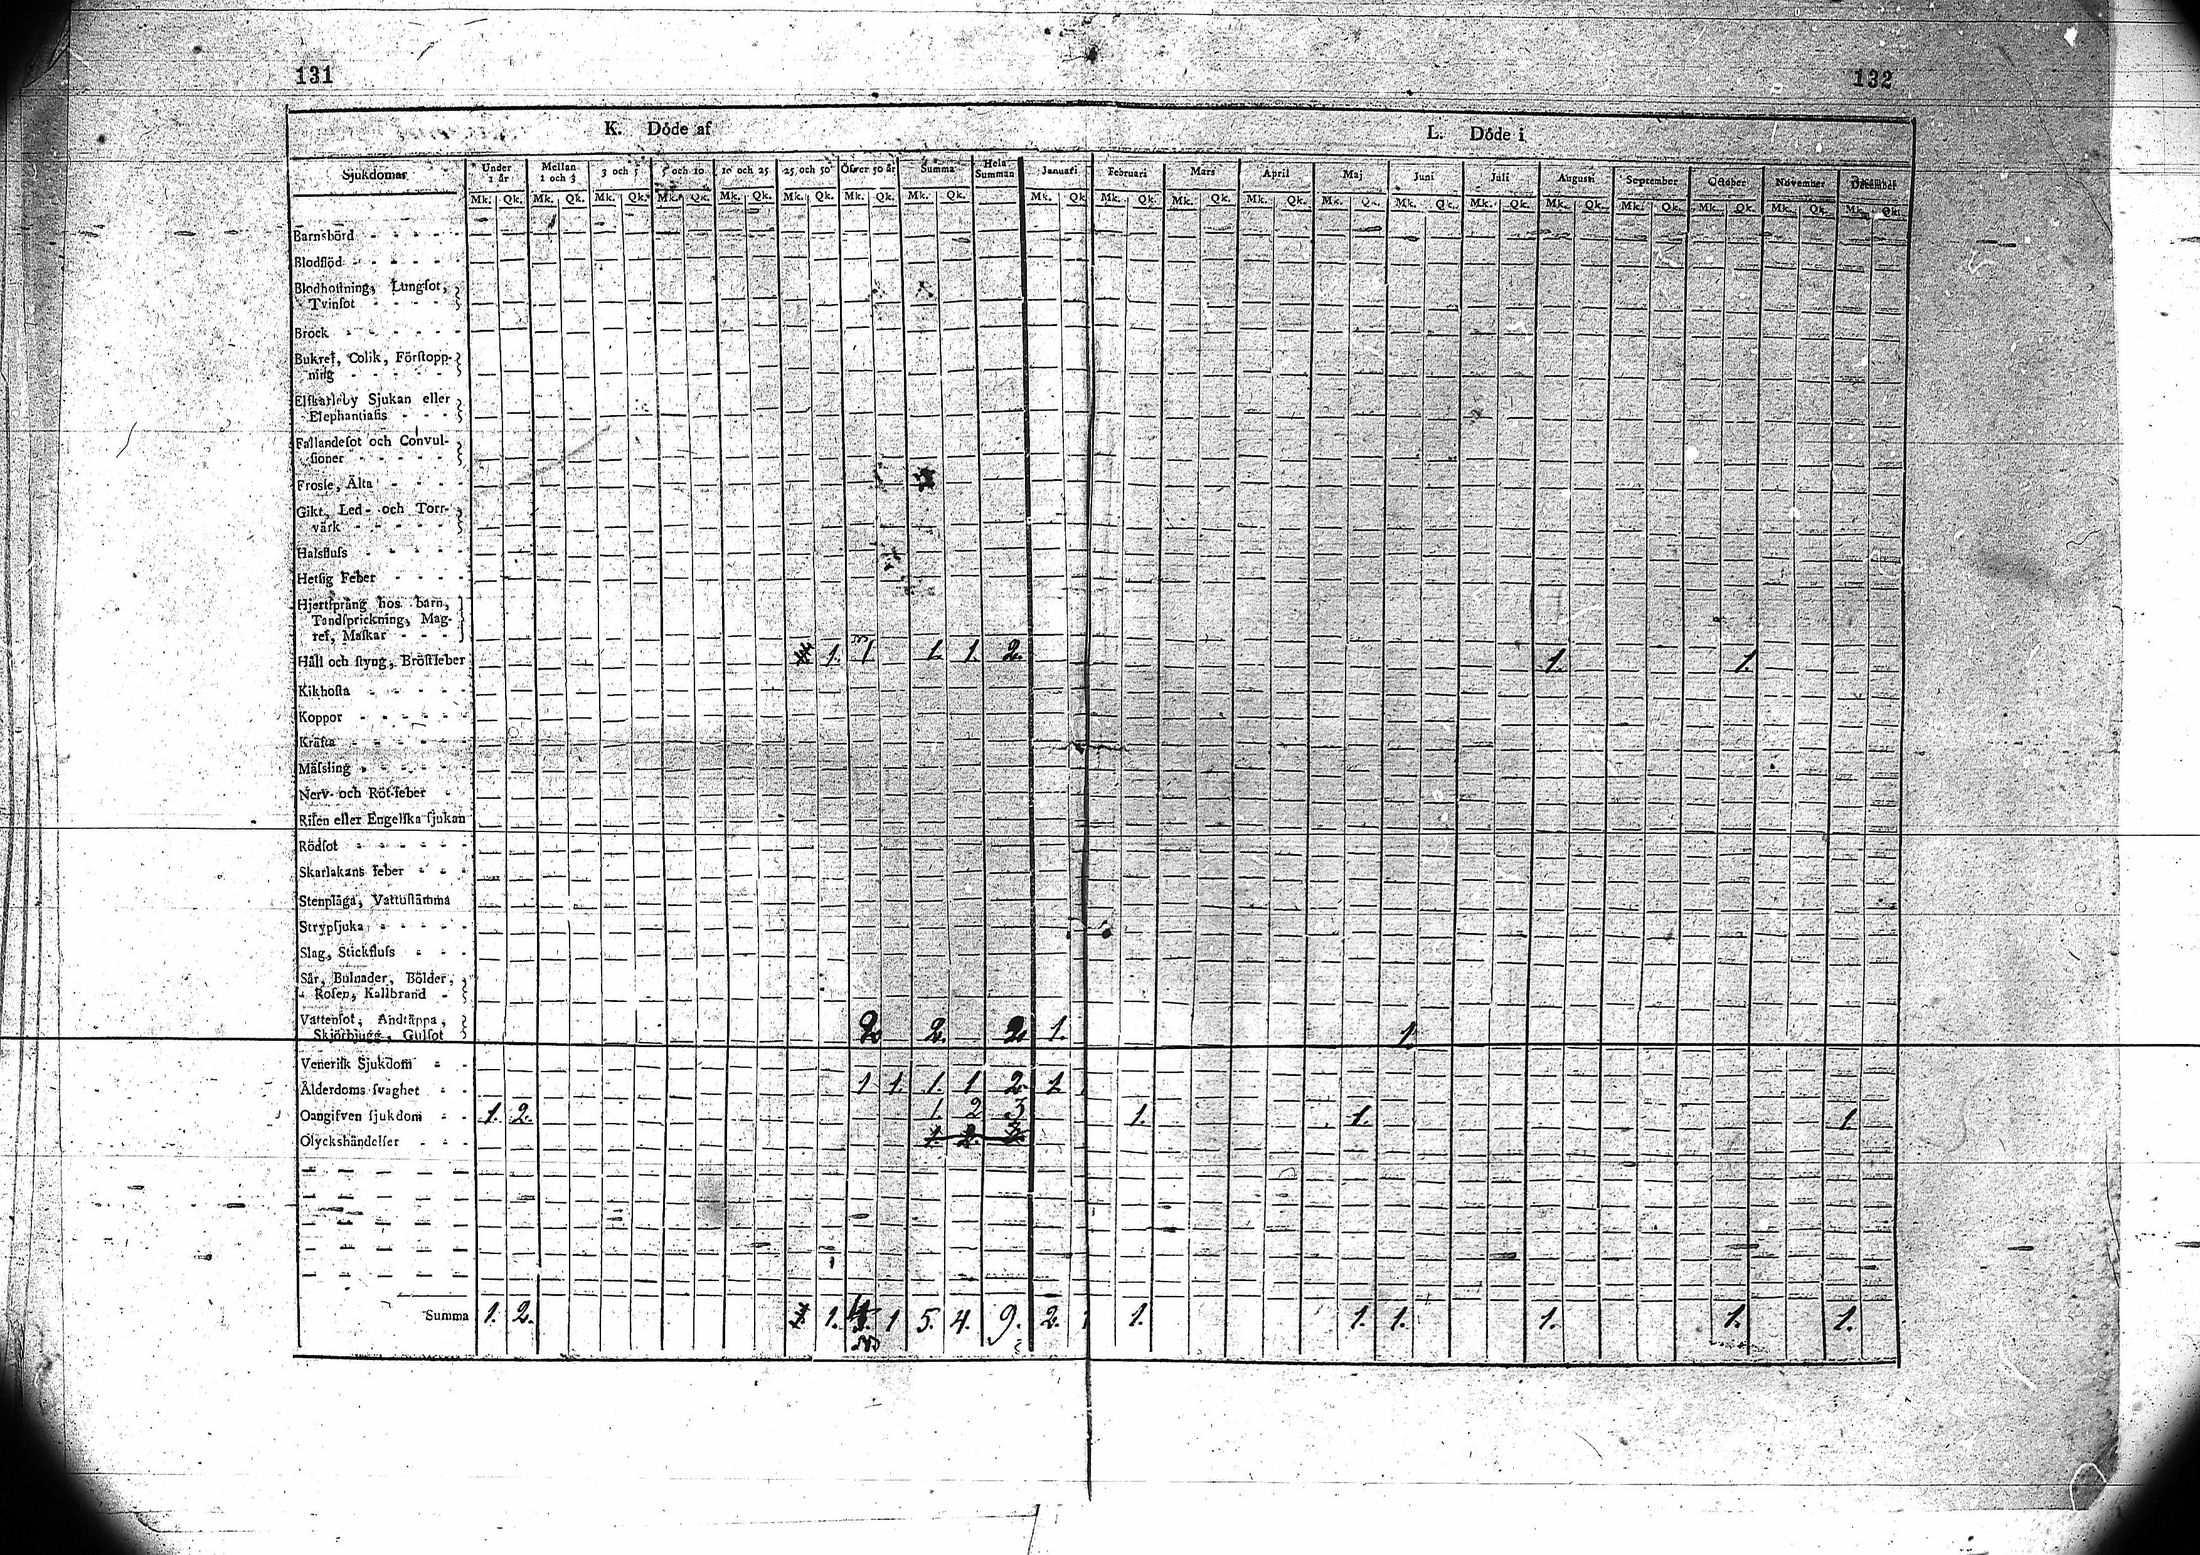 131
132
K. Döde af
L. Döde i
Sjukdomar Under 1 år Mellan 1 och 3 3 och 5 5 och 10 10 och 25 25 och 50 Öfver 50 år Summa Hela Summan Januari Februari Mars April Maj Juni Juli Augusti September October November December
Mk. Qk. Mk. Qk. Mk. Qk. Mk. Qk. Mk. Qk. Mk. Qk. Mk. Qk. Mk. Qk. Mk. Qk. Mk. Qk. Mk. Qk. Mk. Qk. Mk. Qk. Mk. Qk. Mk. Qk. Mk. Qk. Mk. Qk. Mk. Qk. Mk. Qk. Mk. Qk.
Barnsbörd
Blodflöd
Blodhostning, Lungsot,
Tvinsot
Bröck
Bukref, Colik, Förstopp-
ning
Elfkarleby Sjukan eller
Elephantiasis
Fallandesot och Convul-
sioner
Frossa, Älta
Gikt, Led- och Torr-
värk
Halsfluss
Hetsig Feber
Hjertsprång hos barn,
Tandsprickning, Mag-
ref, Maskar
Håll och styng, Bröstfeber 1. 1 1. 1. 2. 1. 1.
Kikhosta
Koppor
Kräfta
Mässling
Nerv- och Röt-feber
Risen eller Engelska sjukan
Rödsot
Skarlakans feber
Stenplåga, Vattustämma
Strypsjuka
Slag, Stickfluss
Sår, Bulnader, Bölder,
Rosen, Kallbrand
Vattensot, Andtäppa,
Skjörbjugg, Gulsot 2 2. 2 1. 1.
Venerisk Sjukdom
Ålderdoms svaghet 1 1. 1. 1 2. 1.
Oangifven sjukdom 1. 2. 1. 2 3 1. 1. 1.
Olyckshändelser 1. 2. 3
Summa 1. 2. 1. 4 1 5. 4. 9. 2. 1. 1. 1. 1. 1. 1.